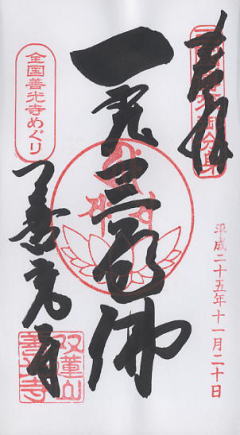 奉拝
平成二十五年十一月二十日
一光三尊佛
全国善光寺めぐり
善光寺
双蓮山
善光寺